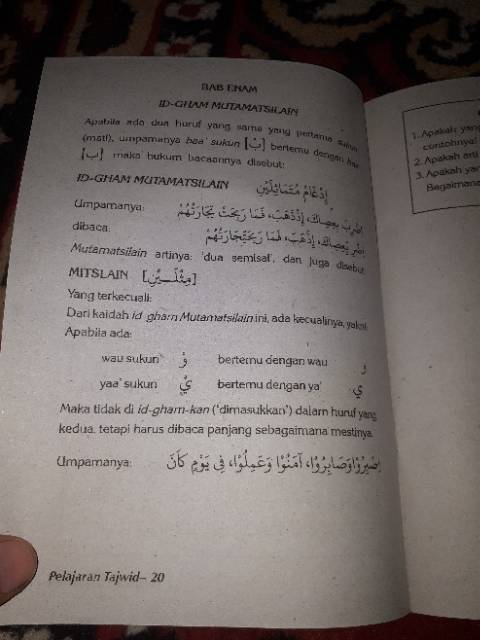 BAB ENAM
ID-GHAM MUTAMATSILAIN
Apabila ada dua huruf yang sama yang pertama sukun
(mati), umpamanya baa' sukun [بْ] bertemu dengan
[ب] maka hukum bacaannya disebut:
ID-GHAM MUTAMATSILAIN إِدْغَامُ مُتَمَاثِلَيْنِ
Umpamanya: اِضْرِبْ بِعَصَاكَ، إِذْذَهَبَ، فَمَا رَبِحَتْ تِجَارَتُهُمْ
dibaca: اِضْرِبِّعَصَاكَ، إِذَّهَبَ، فَمَا رَبِحَتِّجَارَتُهُمْ
Mutamatsilain artinya: 'dua semisal', dan juga disebut
MITSLAIN [مِثْلَـــيْنِ]
Yang terkecuali:
Dari kaidah id gham Mutamatsilain ini, ada kecualinya, yakni
Apabila ada:
wau sukun وْ bertemu dengan wau و
yaa' sukun يْ bertemu dengan ya' ي
Maka tidak di id-gham-kan ('dimasukkan') dalam huruf yang
kedua, tetapi harus dibaca panjang sebagaimana mestinya.
Umpamanya: اِصْبِرُوْاوَصَابِرُوْا، آمَنُوْا وَعَمِلُوْا، فِى يَوْمٍ كَانَ
Pelajaran Tajwid– 20
1. Apakah yang
contohnya!
2. Apakah arti
3. Apakah
Bagaimana